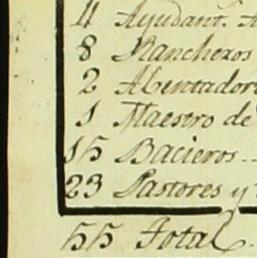 4 Ayudant.
8 Rancheros
2 Abentador
1 Maestro de
15 Bacieros..
23 Pastores y
55 Total.